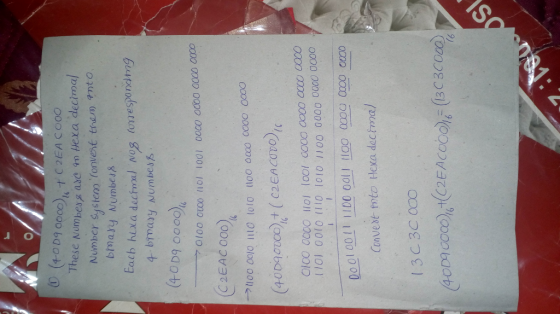 ① (40D90000)16 + (C2EAC000
These numbers are in Hexa decimal
Number system. Convert them into
binary numbers.
Each hexa decimal nos corresponding
4 binary numbers.
(40D90000)16
0100 0000 1101 1001 0000 0000 0000 0000
(C2EAC000)16
→ 1100 0010 1110 1010 1100 0000 0000 0000
(40D90000)16 + (C2EAC000)16
0100 0000 1101 1001 0000 0000 0000 0000
1101 0010 1110 1010 1100 0000 0000 0000
00010011 1100 0011 1100 0000 0000 0000
Convert into Hexa decimal
13C3C000
(40D90000)16 + (C2EAC000)16 = (13C3C000)16
ISO 9001:2